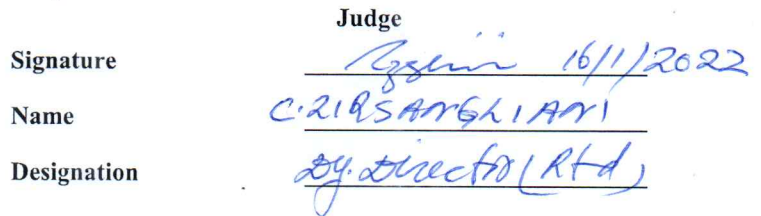 Judge
Signature 16/1/2022
Name C. ZIRSANGLIANI
Designation Dy. Director (Rtd)